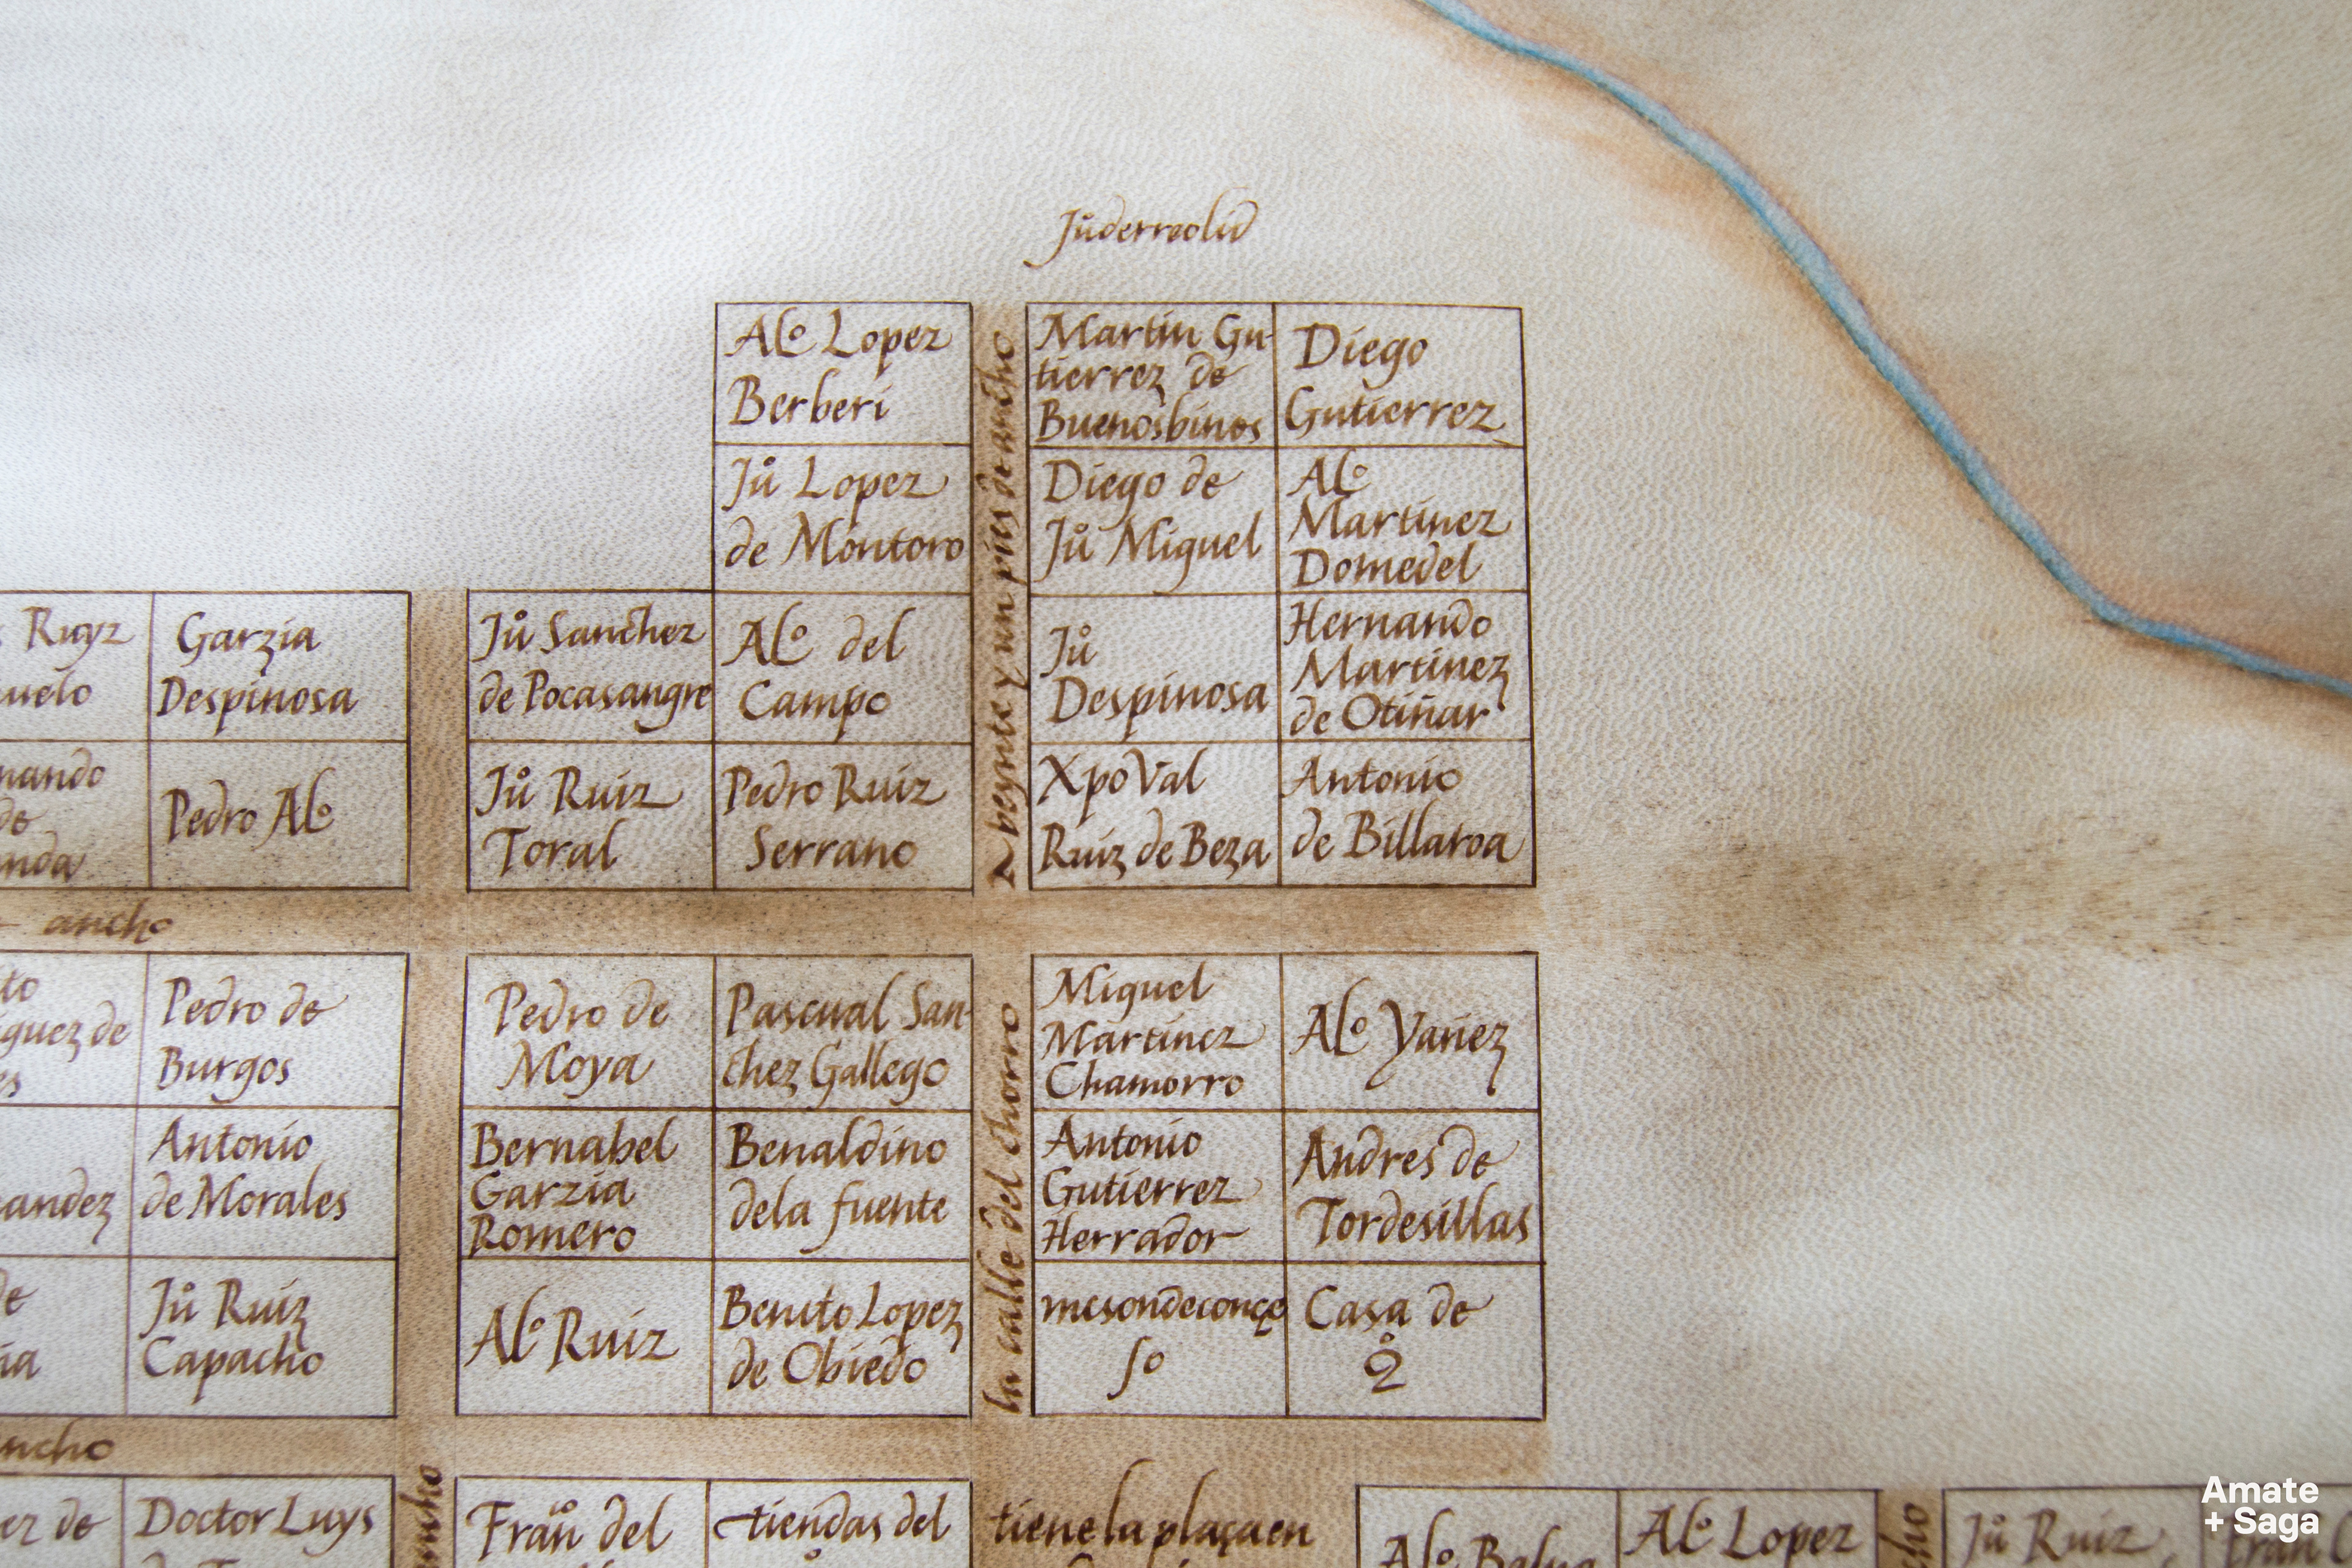 Jůderreolid
Alº Lopez
Berberi
Martin Gu-
tierrez de
Buenosbinos
Diego
Gutierrez
Jů Lopez
de Montoro
Diego de
Jů Miguel
Alº
Martinez
Domedel
Ruyz
Garzia
Despinosa
Jů Sanchez
de Pocasangre
Alº del
Campo
Jů
Despinosa
Hernando
Martinez
de Otiñar
Pedro Alº
Jů Ruiz
Toral
Pedro Ruiz
Serrano
XpoVal
Ruiz de Beza
Antonio
de Billaroa
veynte y un pies de ancho
ancho
guez de
Pedro de
Burgos
Pedro de
Moya
Pascual San-
chez Gallego
Miguel
Martinez
Chamorro
Alº Yañez
andez
Antonio
de Morales
Bernabel
Garzia
Romero
Benaldino
dela fuente
Antonio
Gutierrez
Herrador
Andres de
Tordesillas
Jů Ruiz
Capacho
Alº Ruiz
Benito Lopez
de Obiedo
mesondeconçe
so
Casa de
la calle del chorro
ncho
ez de
Doctor Luys
Frañ del
tiendas del
tiene la plaça en
Alº
Alº Lopez
Jů Ruiz
Amate
+ Saga